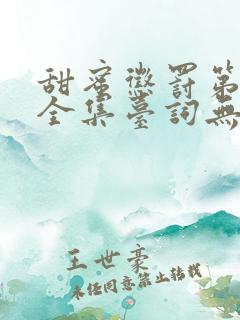 甜蜜懲罰第
全集臺詞無
王世豪
未经同意禁止转载